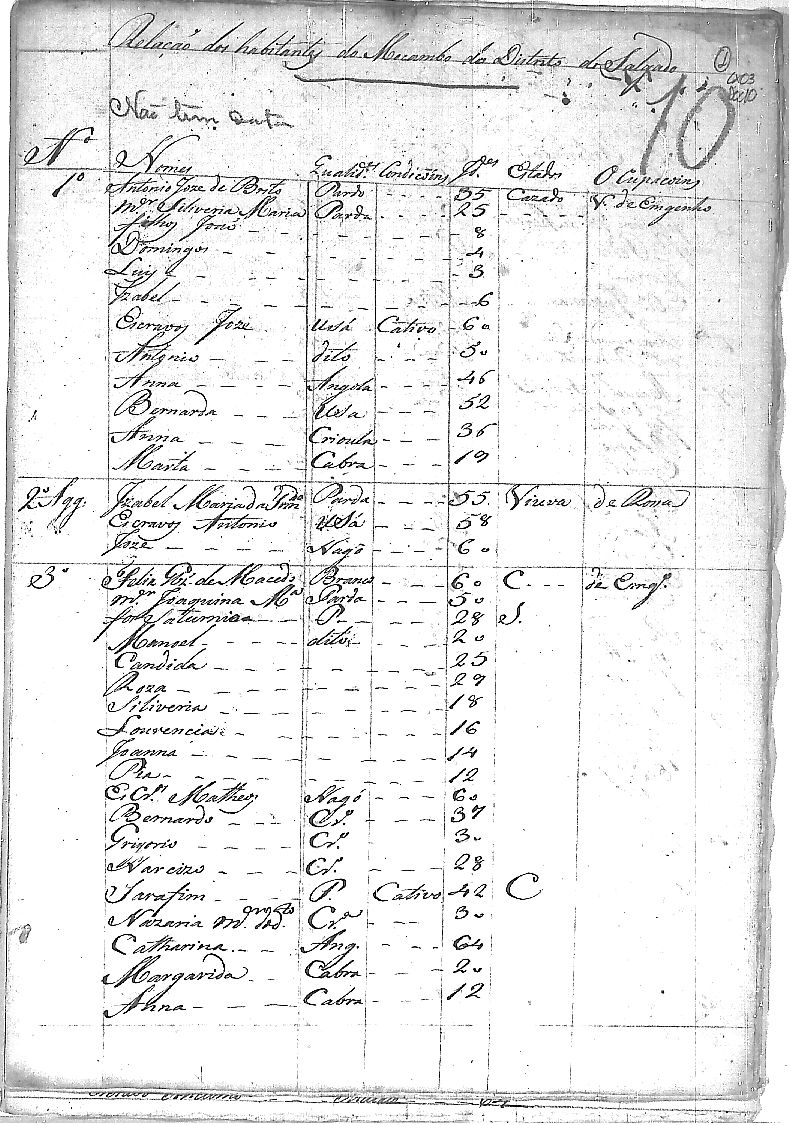 Relação dos habitantes do Mocambo do Distrito do Salgado
1
CX03
Doc10
10
Não tem data
Nº Nomes Qualid.es Condicoins Id.es Estados Ocupacoins
1º Antonio Joze de Brito Pardo 35 Cazado V. de Emgenho
m.er Siliveria Maria Parda 25
filhos João 8
Domingos 4
Luis 3
Izabel 6
Escravos Joze Usá Cativo 60
Antonio dito 50
Anna Angola 46
Bernarda Usa 52
Anna Crioula 36
Marta Cabra 19
2º Agg. Izabel Maria da Parda 55 Viuva de Rona
Escravos Antonio Usá 58
Joze Nagô 60
3º de Macedo Branco 60 C. de Emg.
m.er Joaquina M.a Parda 50
Saturnina P. 28 S.
Manoel dito 20
Candida 25
Roza 29
Siliveria 18
Lourencia 16
Joanna 14
Pia 12
EsCr.os Matheos Nagó 60
Bernardo Cr.º 37
Grigorio Cr.º 30
Narcizo Cr. 28
Sarafim P. Cativo 42 C
Nazaria m.er Cr.a 30
Catharina Ang. 64
Margarida Cabra 20
Anna Cabra 12